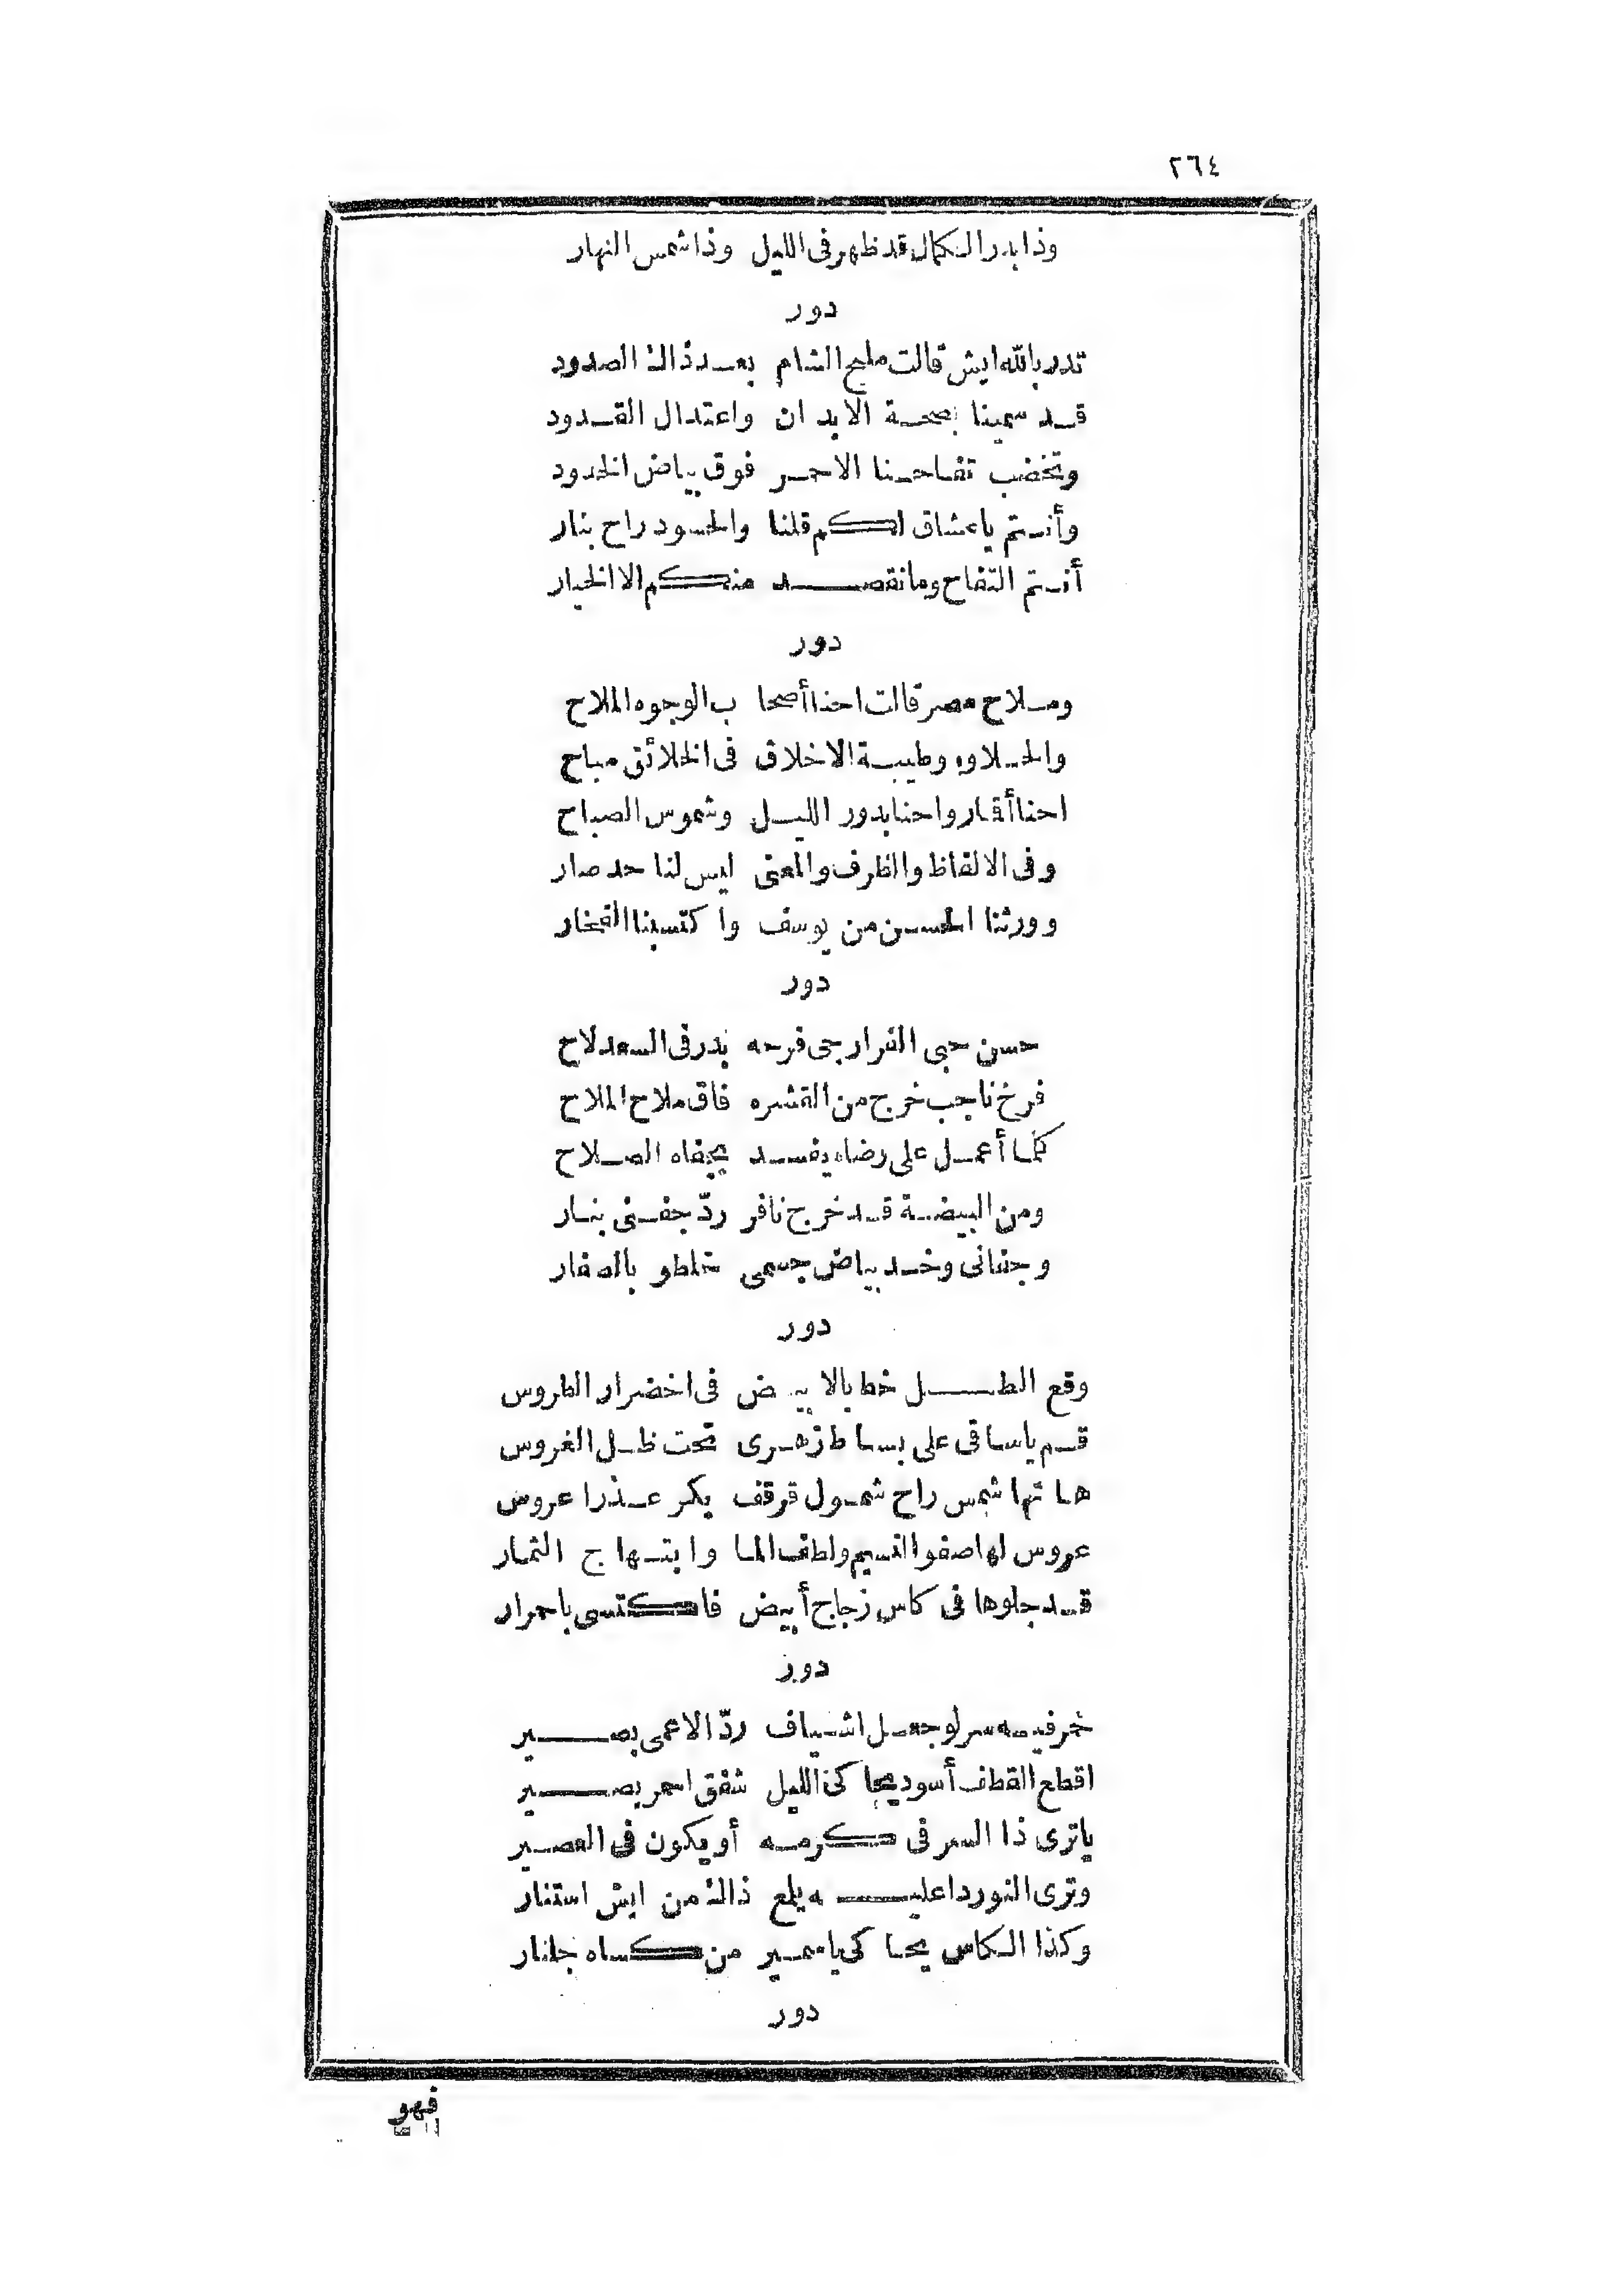 ٢٦٤
وذا بدر الكمال قد ظهر فى الليل وذا شمس النهار
دور
تدر بالله ايش قالت ملح الشام بعد ذاك الصدود
قد سمينا بصحة الابدان واعتدال القدود
وتخضب تفاحنا الاحمر فوق بياض الخدود
وأنتم ياعشاق لكم قلنا والحسود راح بنار
أنتم التفاح ومانقصد منكم الا الخيار
دور
وملاح مصر قالت احنا أصحا ب الوجوه الملاح
والحلاوه وطيبة الاخلاق فى الخلائق مباح
احنا أقمار واحنا بدور الليل وشموس الصباح
وفى الالفاظ والظرف والمعنى ليس لنا حد صار
وورثنا الحسن من يوسف واكتسبنا الفخار
دور
حسن حبى القرارجى فرحه بدر فى السعد لاح
فرخ ناجب خرج من القشره فاق ملاح الملاح
كلما أعمل على رضاه يفسد بجفاه الصلاح
ومن البيضة قد خرج نافر ردّ جفنى بنار
وجفانى وخد بياض جسمى خلطو بالصفار
دور
وقع الطل خط بالابيض فى اخضرار الطروس
قم ياساقى على بساط زهرى تحت ظل الغروس
هاتها شمس راح شمول قرقف بكر عذرا عروس
عروس لها صفو النسيم ولطف الما وابتهاج الثمار
قد جلوها فى كاس زجاج أبيض فاكتسى باحمرار
دور
خمر فيه سر لو جعل اشياف ردّ الاعمى بصير
اقطع القطاف أسود يحاكى الليل شفق احمر يصير
ياترى ذا السر فى كرمه أو يكون فى العصير
وترى النور دا عليه يلمع ذاك من ايش استنار
وكذا الكاس يحاكى ياسمير من كساه جلنار
دور
فهو